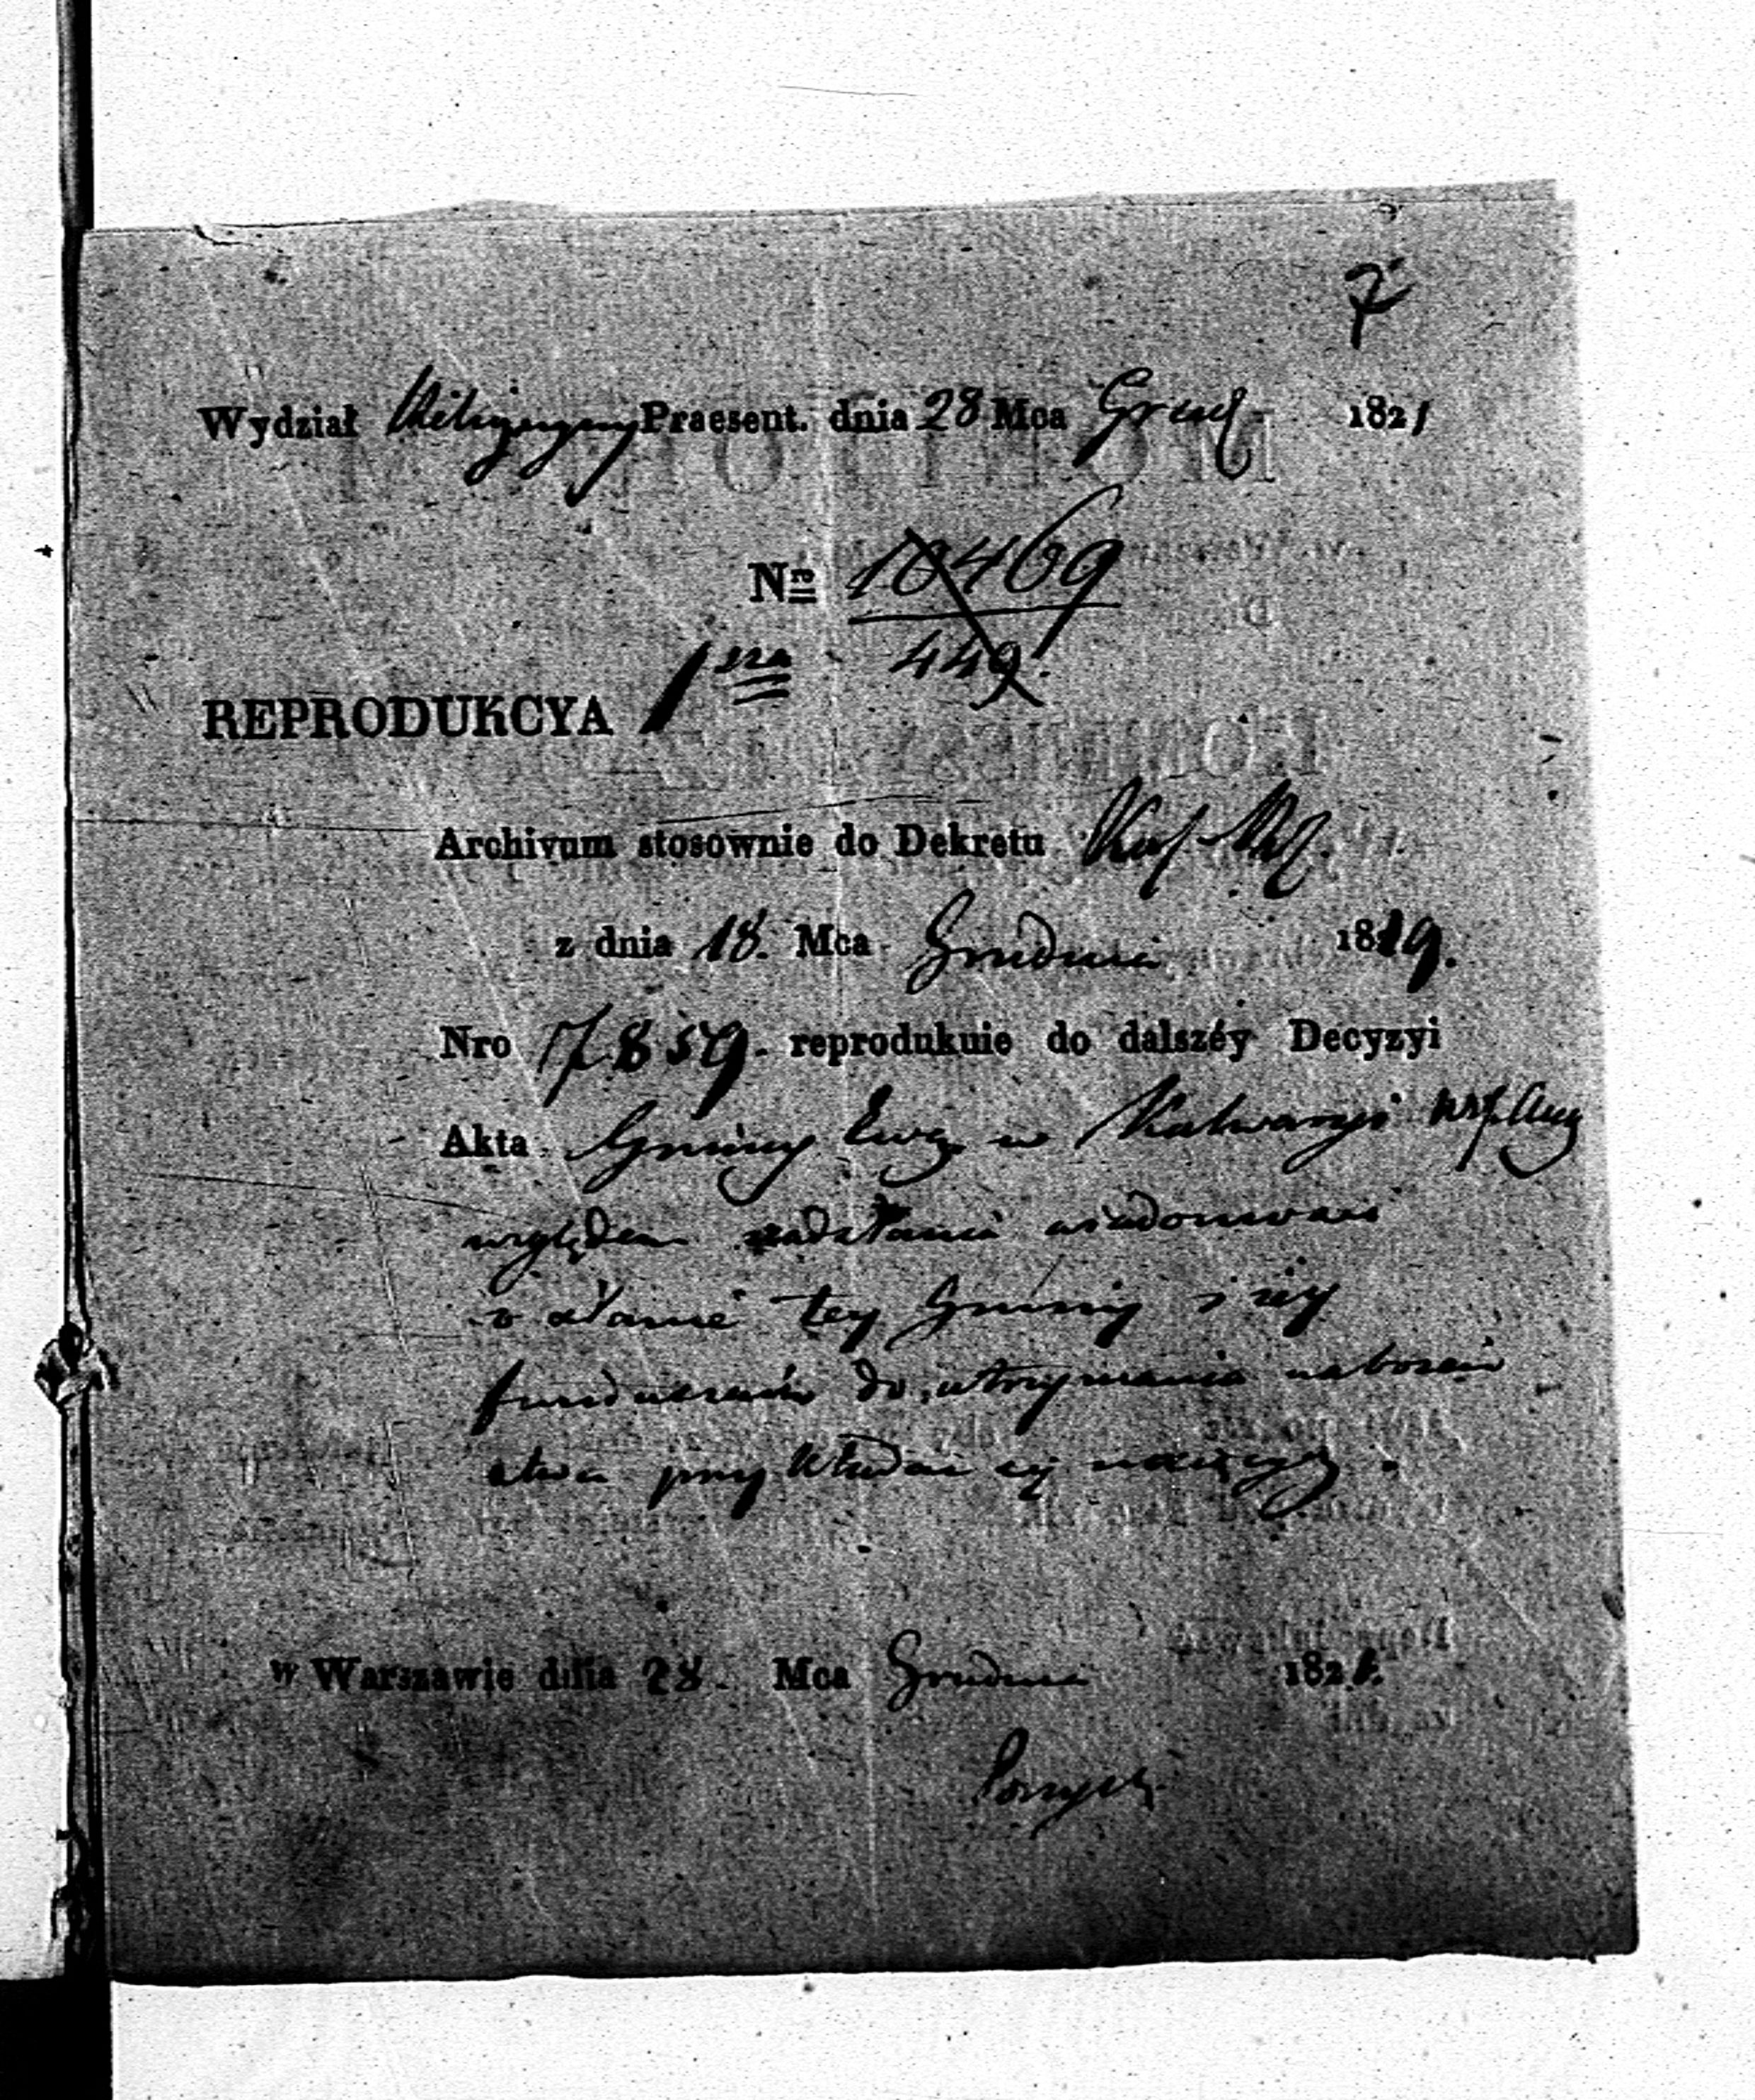 7
Wydział Religijny Praesent. dnia 28 Mca Grud. 1821
Nro 10469
449.
REPRODUKCYA 1sza
Archivum stosownie do Dekretu
z dnia 18. Mca Grudnia 1819.
Nro 17859. reprodukuie do dalszéy Decyzyi
Akta Gminy Ewg. w Kalwaryi
względem nadesłania wiadomości
o stanie tey Gminy i iéy
funduszów do utrzymania nabożeń
stwa
w Warszawie dnia 28. Mca Grudnia 1821.